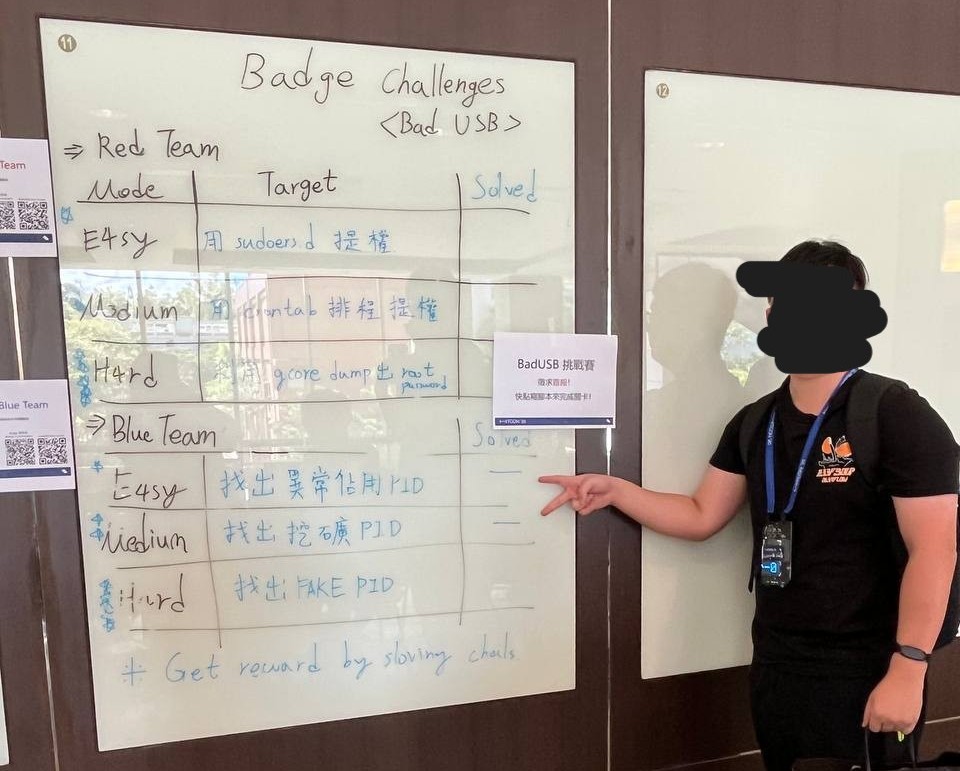 11
Badge Challenges
<Bad USB>
⇒ Red Team
Mode Target Solved
E4sy 用 sudoers.d 提權
M3dium 用 crontab 排程提權
H4rd 利用 gcore dump出 root password
⇒ Blue Team
Solved
E4sy 找出異常佔用 PID —
Medium 找出挖礦 PID —
H4rd 找出 FAKE PID
* Get reward by sloving chals
Team
Blue Team
BadUSB 挑戰賽
快點寫腳本來完成關卡!
12